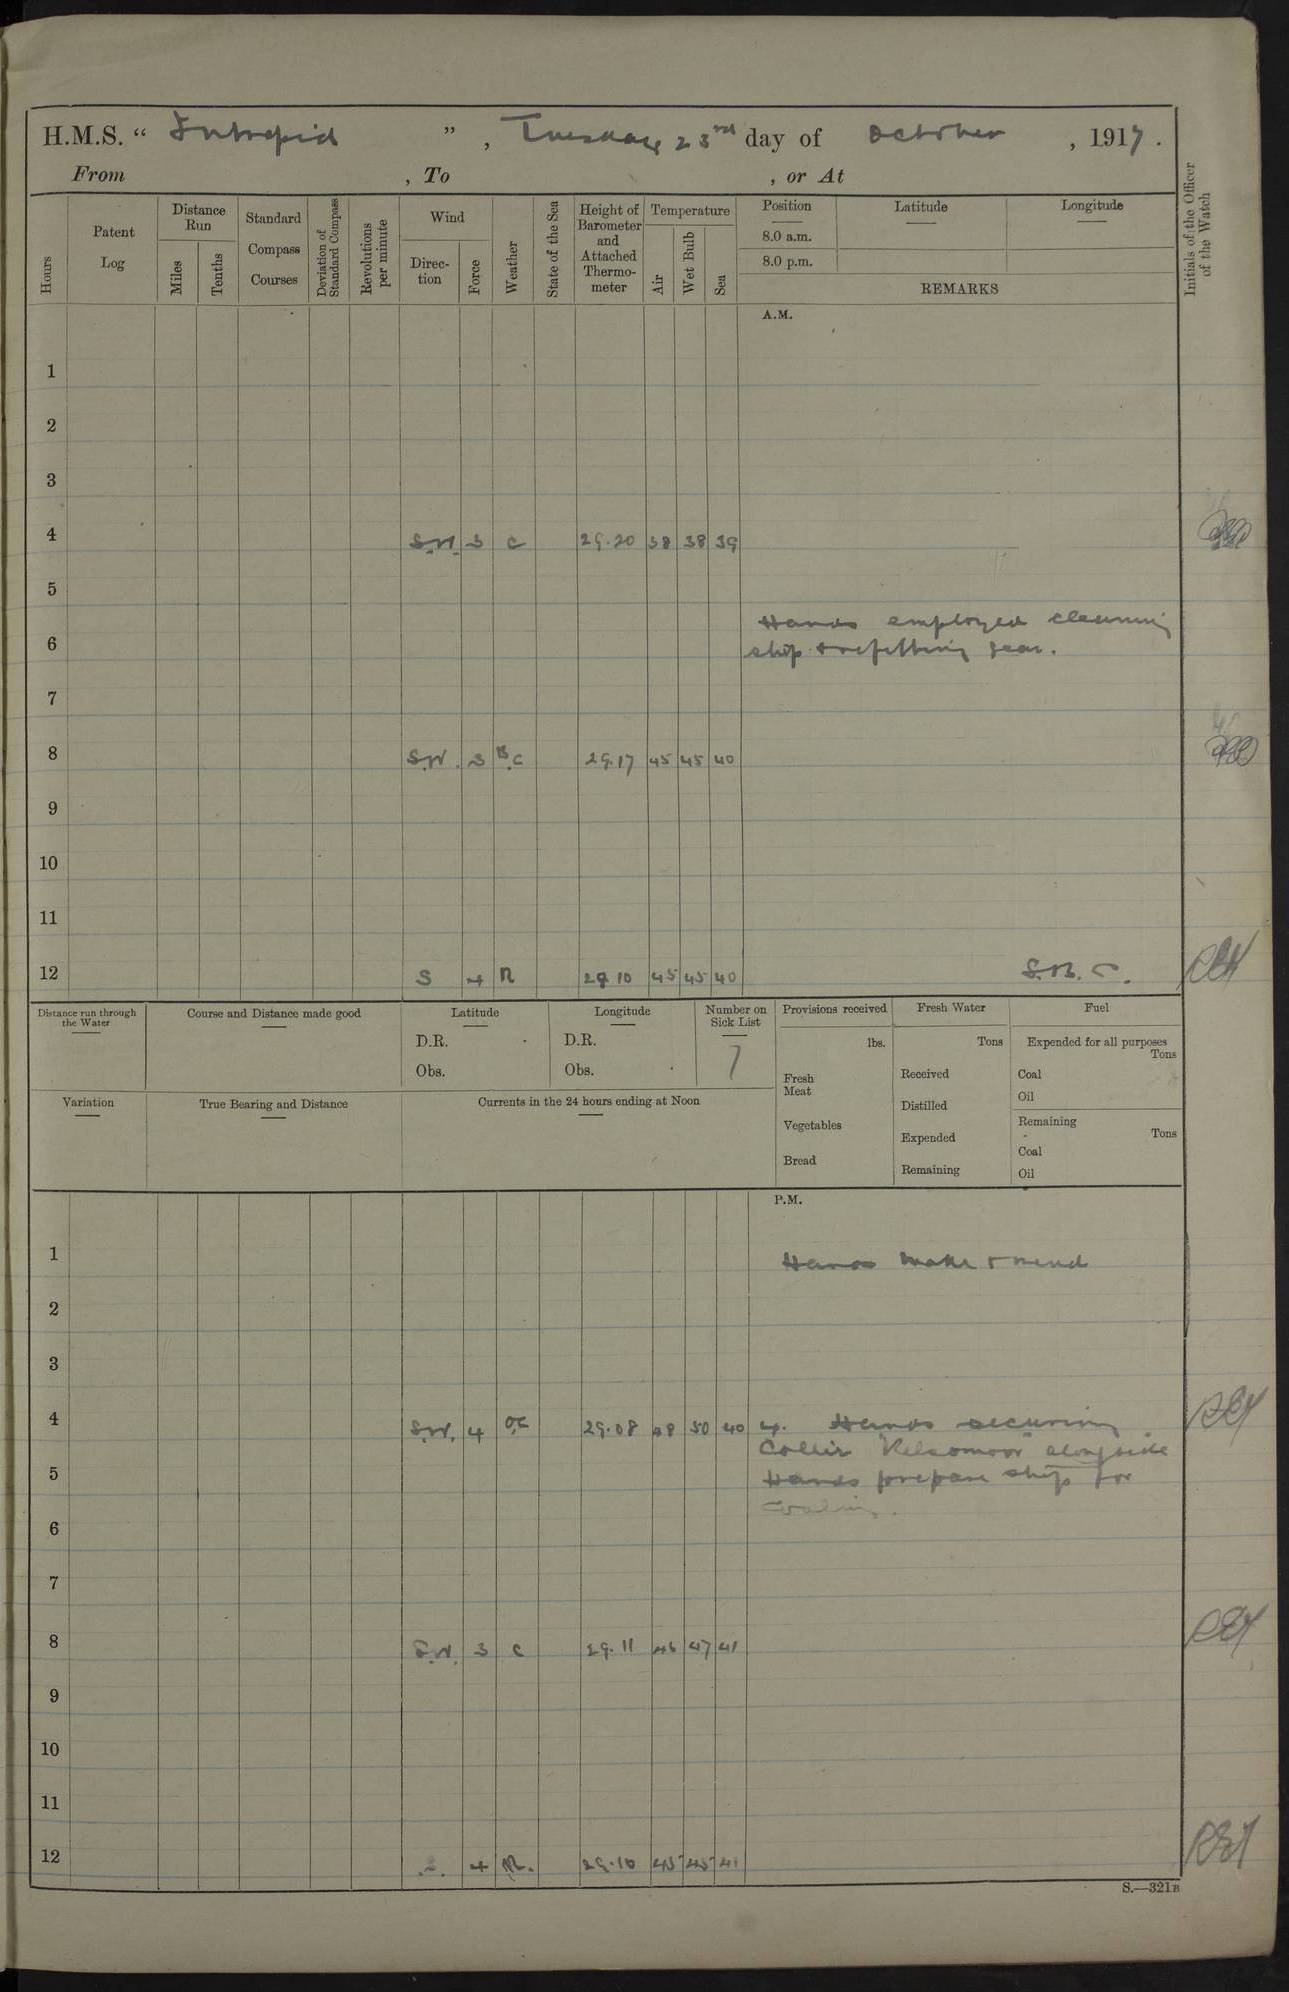 H.M.S. “ Intrepid ” , Tuesday 23rd day of October , 1917 .
From , To , or At
Hours
Patent Log
Distance Run
Miles
Tenths
Standard Compass Courses
Deviation of Standard Compass
Revolutions per minute
Wind
Direc- tion
Force
Weather
State of the Sea
Height of Barometer and Attached Thermo- meter
Temperature
Air
Wet Bulb
Sea
Position
8.0 a.m.
8.0 p.m.
Latitude
Longitude
REMARKS
Initials of the Officer of the Watch
A.M.
1
2
3
4 S.W. 3 C 29.20 38 38 39
5
Hands employed cleaning
6 ship & refitting gear.
7
8 S.W. 3 B.C 29.17 45 45 40
9
10
11
12 S 4 R 29 10 45 45 40
Distance run through the Water
Course and Distance made good
Latitude
D.R.
Obs.
Longitude
D.R.
Obs.
Number on Sick List
7
Provisions received
lbs.
Fresh Meat
Vegetables
Bread
Fresh Water
Tons
Received
Distilled
Expended
Remaining
Fuel
Expended for all purposes
Tons
Coal
Oil
Remaining
Tons
Coal
Oil
Variation
True Bearing and Distance
Currents in the 24 hours ending at Noon
P.M.
1 Hands make & mend
2
3
4 S.W. 4 O.C 29.08 48 50 40 4. Hands securing
Collier "Kelsomoor" alongside
5 Hands prepare ship for
coaling.
6
7
8 S.W. 3 C 29.11 46 47 41
9
10
11
12 4 R. 29.10 45 45 41
S.—321B